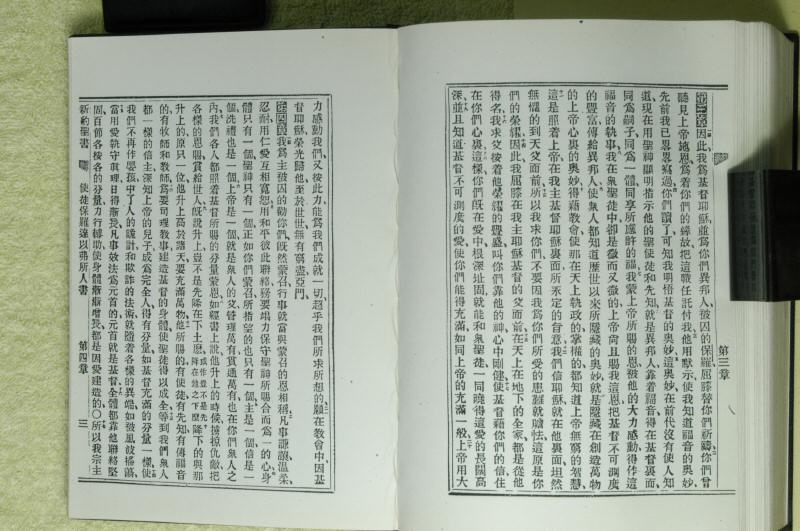 第三章
第三章因此我爲基督耶穌並爲你們異邦人被囚的保羅屈膝替你們祈禱你們曾
聽見上帝施恩爲着你們的緣故把這職任託付我他用默示使我知道福音的奧妙
先前我已畧畧寫過你們讀了可知我明悟基督的奧妙這奧妙在前代沒有使人知
道現在用聖神顯明指示他的聖使徒和先知就是異邦人靠着福音得在基督裏面
同爲嗣子同爲一體同享所應許的福我蒙上帝所賜的恩被他的大力感動得作這
福音的執事我在衆聖徒中卻是微而又微的上帝尙且賜我這恩把基督不可測度
的豐富傳給異邦人使衆人都知道歷世以來所隱藏的奧妙就是隱藏在創造萬物
的上帝心裏的奧妙得藉教會使那在天上執政的掌權的都知道上帝無窮的智慧
這是照着上帝在我主基督耶穌裏面所不定的旨意我們信耶穌就在他裏面坦然
無懼的到天父面前所以我求你們不要因我爲你們所受的患難就膽怯這原是你
們的榮耀因此我屈膝在我主耶穌基督的父面前在天上在地下的全家都是從他
得名我求父按着他榮耀的豐盛叫你們靠他的神心中剛健使基督藉你們的信住
在你們心裏這樣你們旣在愛中根深址固就能和衆聖徒一同曉得這愛的長闊高
深並且知道基督不可測度的愛使你們能得充滿如同上帝的充滿一般上帝用大
力感動我們又按此力能爲我們成就一切超乎我們所求所想的願在教會中因基
督耶穌榮光歸他至於世世無有窮盡亞門
第四章我爲主被囚的勸你們旣然蒙召行事就當與蒙召的恩相稱凡事謙讓溫柔
忍耐用仁愛互相寬恕用和平彼此聯絡務要竭力保守聖神所賜合而爲一的心身
體只有一個聖神只有一個正如你們蒙召所指望的也只有一個主是一個信是一
個洗禮也是一個上帝是一個就是衆人的父管理萬有貫通萬有也在你們衆人之
內我們各人都照着基督所賜的分量蒙恩如經書上說他升上的時候擄掠仇敵把
各樣的恩賜賞給世人旣說升上豈不是先降在下土麽降下的與那
升上的原只一位他升上高於諸天要充滿萬物他所賜的有使徒有先知有傳福音
的有牧師和教師爲要司理教事建造基督的身體使聖徒得以成全等到我們衆人
都一樣的信主深知上帝的兒子成爲完全人得有分量如基督充滿的分量一樣使
我們不再作嬰孩中了人的詭計和欺詐的法術就隨着各樣的異端如被風波搖蕩
當用愛執守眞理日得漸長凡事效法爲元首的元首就是基督全體都靠他聯絡堅
固百節各按各的分量力行輔助使身體漸漸增長都是因愛建造的○所以我宗主
新約聖書 使徒保羅達以弗所人書 第四章 三